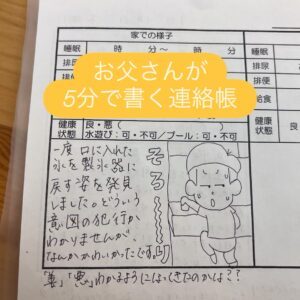 家での様子
睡眠 時 分 ～ 時 分
睡眠
排尿
排便
お父さんが
5分で書く連絡帳
給食
健康状態
良・悪(
水遊び：可・不可/プール：可・不可
健康状態
一度口に入れた
氷を製氷器に
戻す姿を発見
しました。どういう
意図の犯行か
わかりませんが、
なんかかわいかったです。
そろ～
「善」「悪」わかるようにはなってきたのかは？？